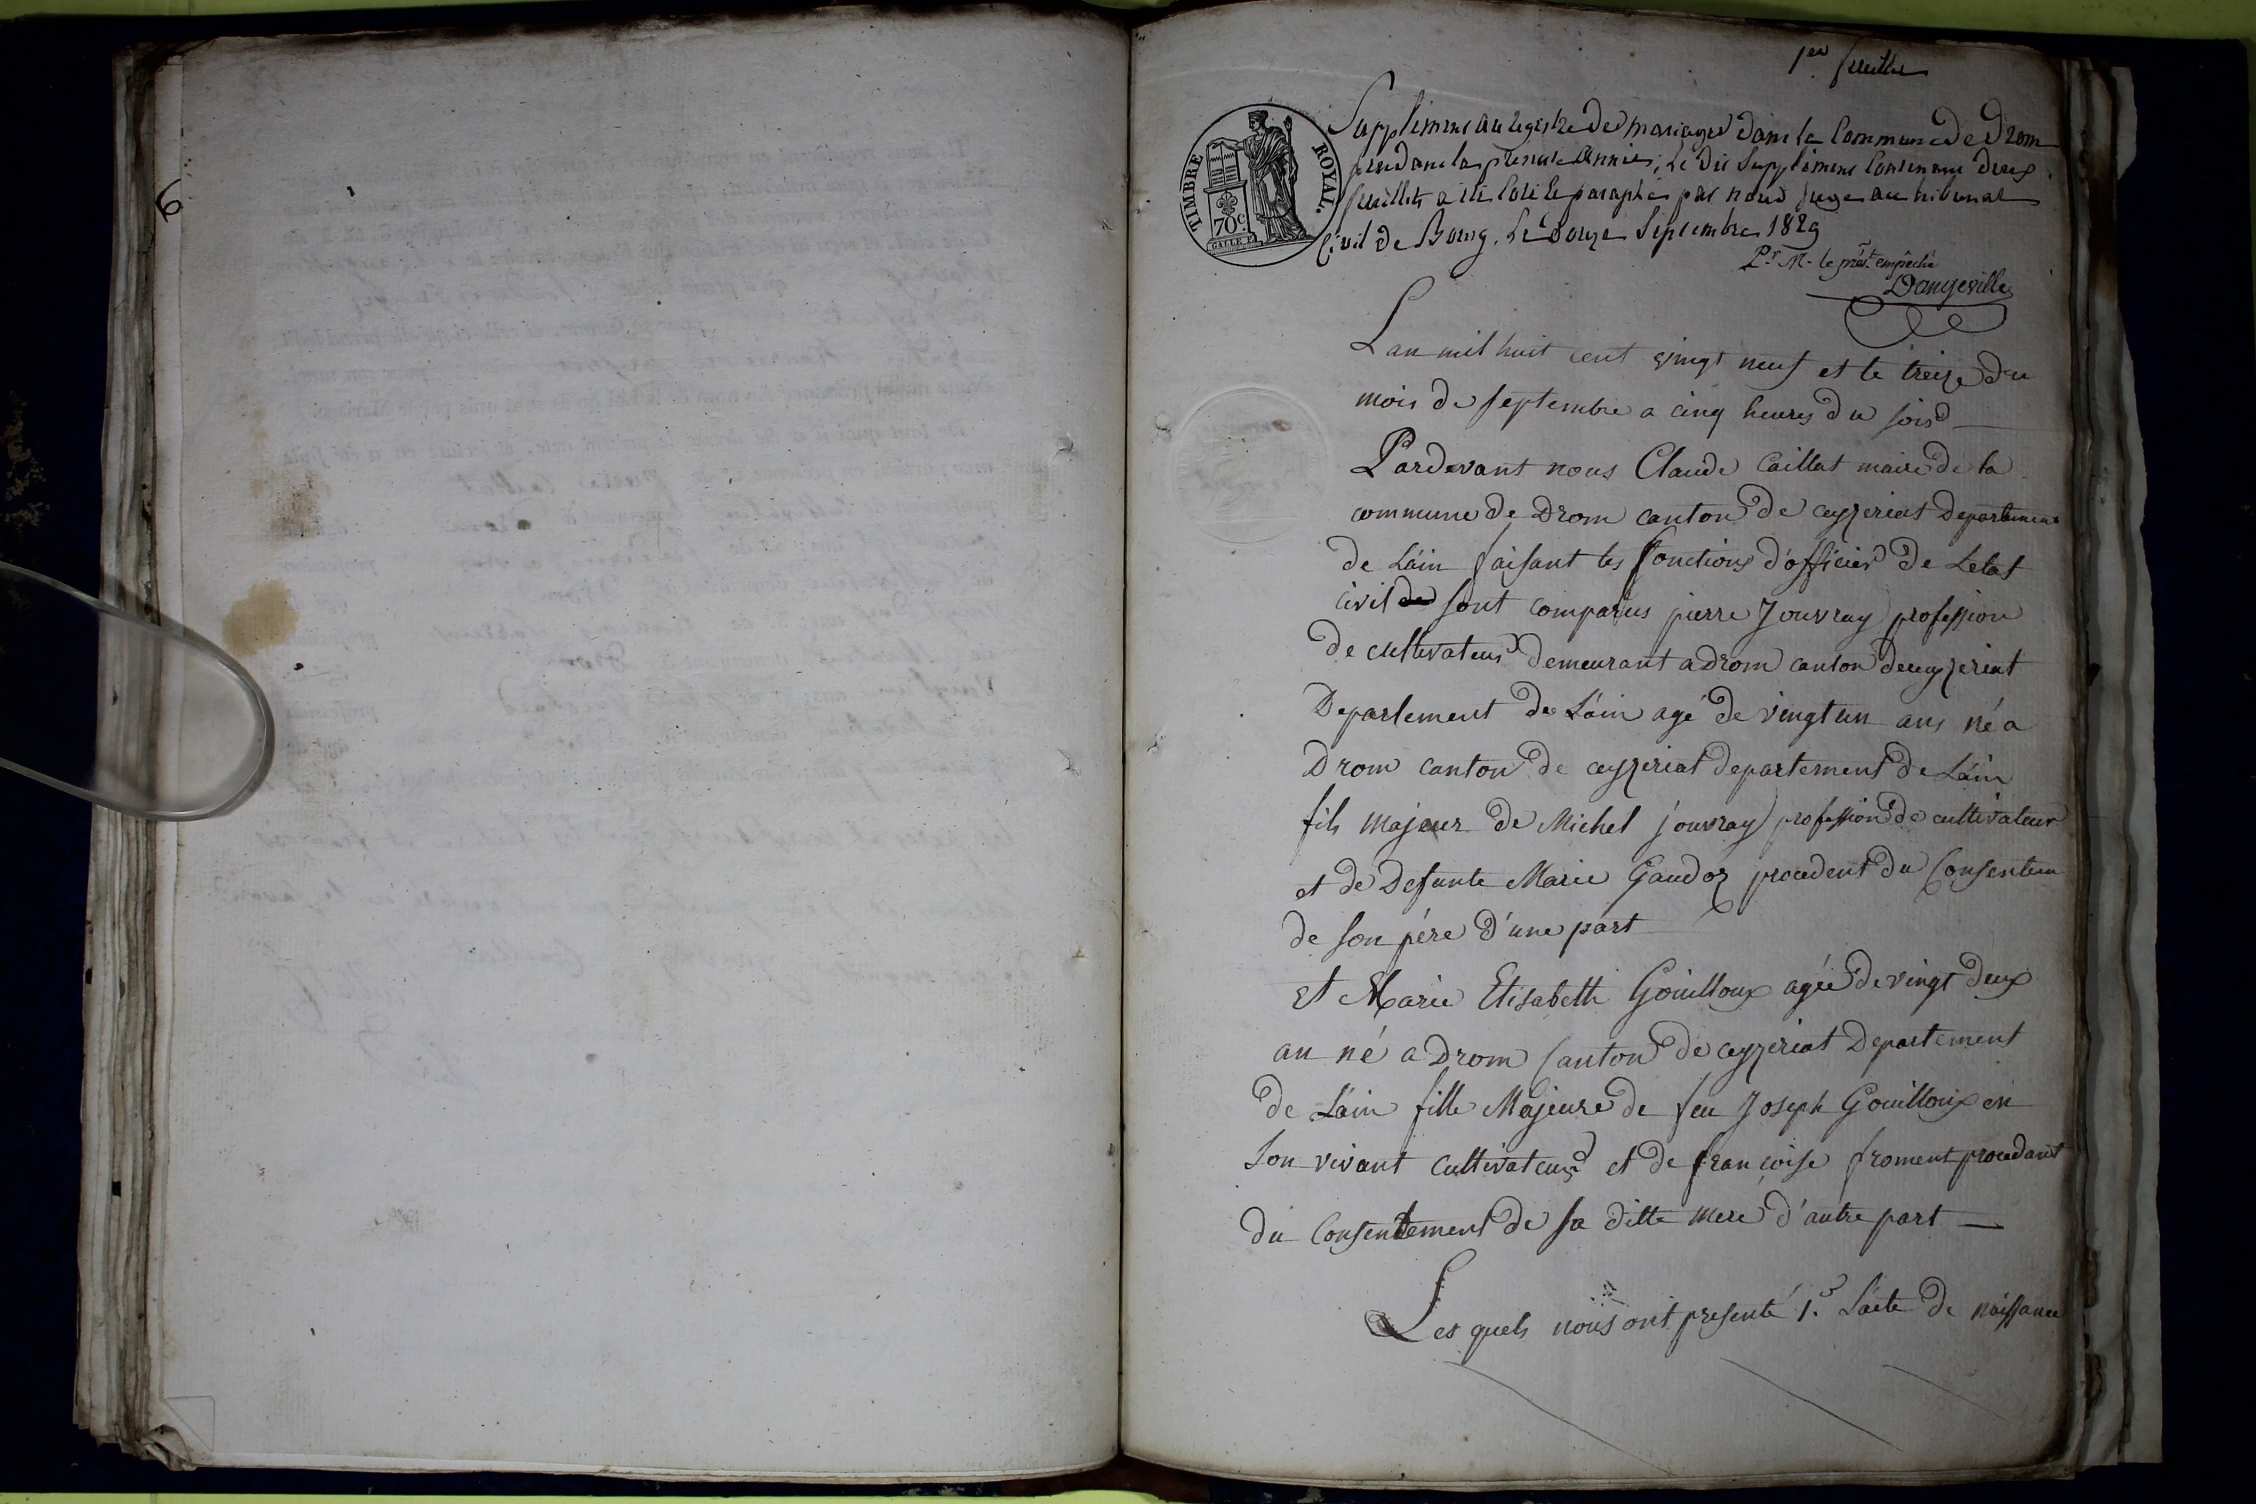 6
1er feuillet
TIMBRE ROYAL.
70c
Supplément au registre des mariages dans la Commune de Drom
pendant la présente année; le dit Supplément Contenant deux
feuillets a été Coté et paraphé par nous Juge au tribunal
Civil de Bourg. Le douze Septembre 1829
Pr. M. le prést. empêché
Dangeville
Lan mil huit cent vingt neuf et le treize du
mois de septembre a cinq heures du soir
Pardevant nous Claude Caillat maire de la
commune de Drom canton de ceyzeriat Departement
de Láin faisant les fonctions d'officier de Letat
civil de sont comparus pierre Jouvray profession
de cultivateur demeurant a drom canton de ceyzeriat
Departement de Láin agé de vingt un ans né a
Drom canton de ceyzeriat departement de Láin
fils majeur de Michel jouvray profession de cultivateur
et de Defunte Marie Gaudoz procedent du Consentem
de son pére d'une part
et Marie Elisabeth Gouilloux agée de vingt deux
an né a Drom Canton de ceyzeriat Departement
de Láin fille Majeure de feu Joseph Gouilloux en
son vivant cultivateur et de françoise froment procedant
du Consentement de sa ditte mere d'autre part
Les quels nous ont presenté 1.º Lácte de naissance